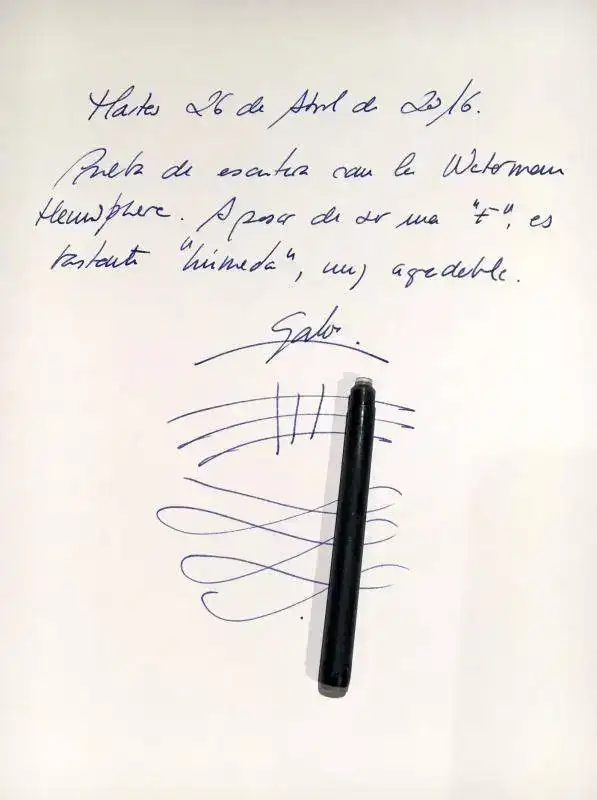 Martes 26 de Abril de 2016.
Prueba de escritura con la Waterman
Hemisphere. A pesar de ser una "F", es
bastante "húmeda", muy agradable.